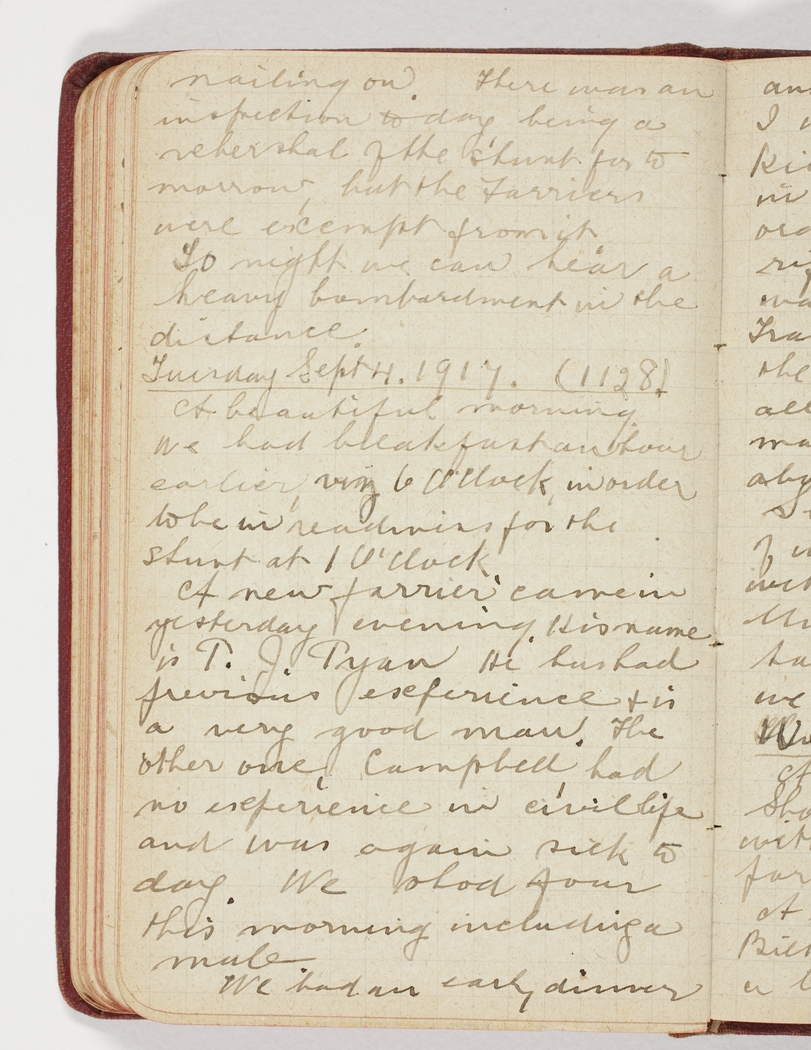 nailing on. There was an
inspection to day being a
rehershal of the stunt for to
morrow, but the Farriers
were exempt from it
To night we can hear a
heavy bombardment in the
distance.
Tuesday Sept 4. 1917. (1128)
A beautiful morning
We had breakfast an hour
earlier, viz 6 O'Clock, in order
to be in readiness for the
stunt at 1 O'Clock
A new farrier came in
yesterday evening. His name
is T. J. Ryan He has had
previous experience & is
a very good man. The
other one, Campbell, had
no experience in civil life
and was again sick to
day. We shod four
this morning including a
mule
We had an early dinner
an
I
Kil
in
ord
rig
wa
Tra
the
all
ma
abo
with
ta
we
A
Sho
with
far
A